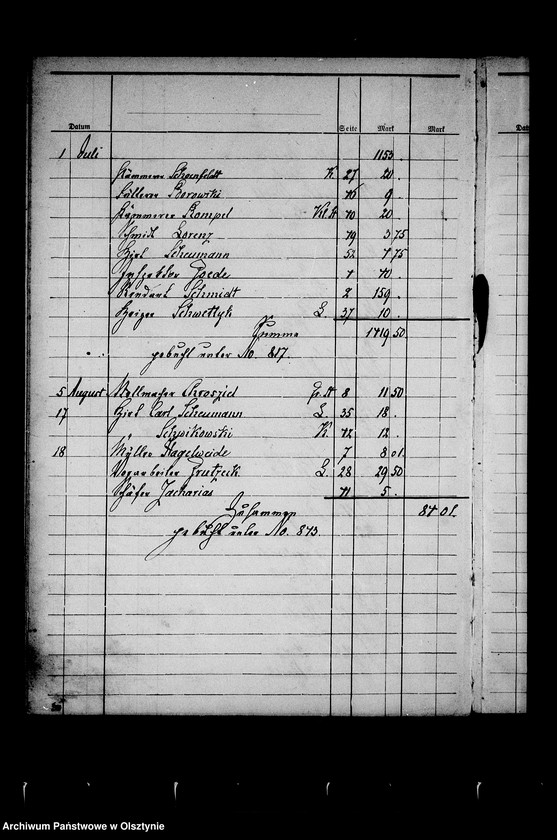 Datum Seite Mark Mark Dat
1 Juli 1153 .
Kämmerer Schoenfeldt K. 27 20 .
Borowski 9 .
Kämmerer Rompel Kl. H 70 20 .
Schmidt Lorenz 19 3 75
Hirt Scheumann 52 7 75
Inspektor Goede
Rendant Schmidt 2 159 .
Heizer Schwettyk L. 37 10 .
Summa 1419 50
gebucht unter No. 817.
5 August Wollmacher Chroszid Gr. H 8 11 50
17 Hirt Carl Scheumann L. 35 18 .
" Schwikowski K. 42 12 .
18 Müller Hagelweide 7 8 01.
Vorarbeiter L. 28 29 50
Schäfer Zacharias 41 5 .
Zusammen 84 01.
gebucht unter No. 873.
Archiwum Państwowe w Olsztynie